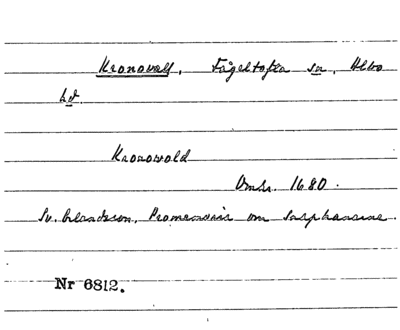 Kronovall, Fågeltofta sn, Albo
hd.
Kronowold
Omkr. 1680.
Sv. om
Nr 6812.